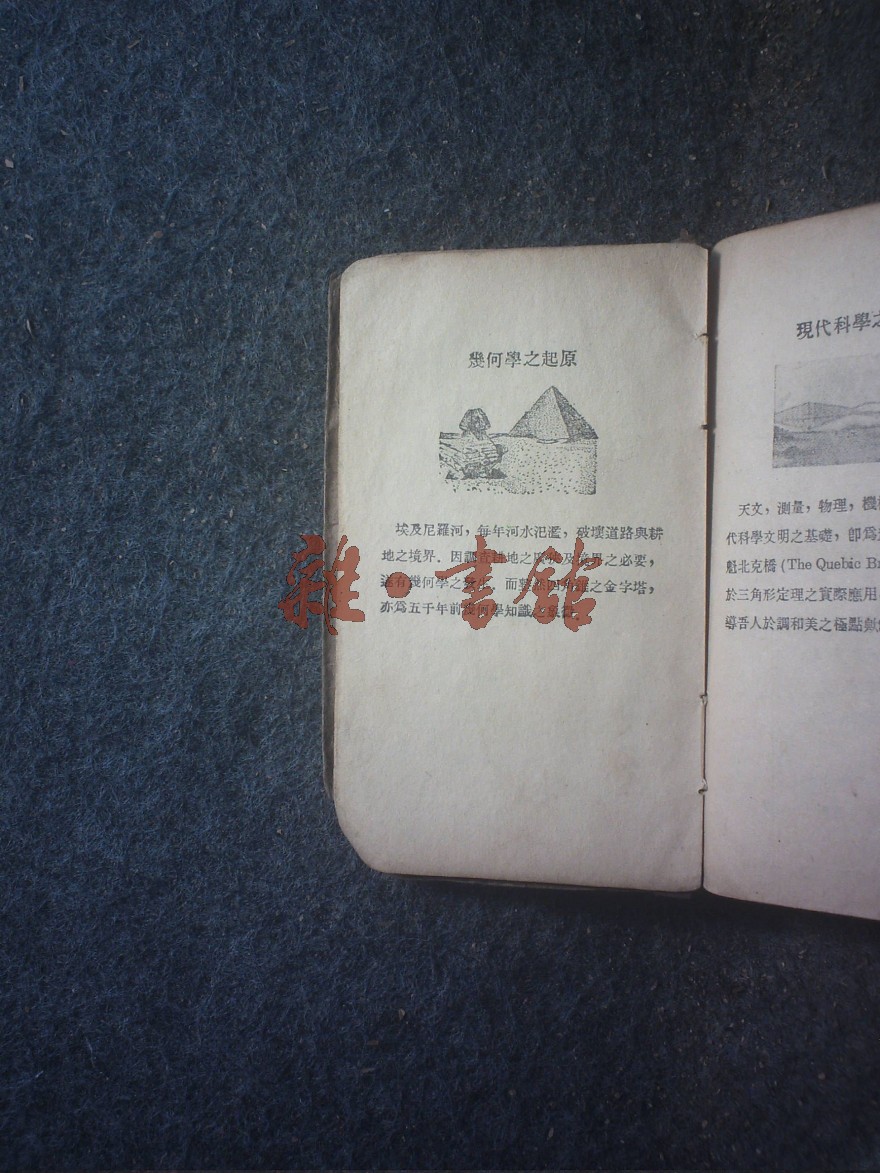 幾何學之起原
埃及尼羅河,每年河水汜濫,破壞道路與耕
地之境界.因調查耕地之廣狹及境界之必要,
遂有幾何學之發生.而莊然四角錐之金字塔,
亦爲五千年前幾何學知識之象徵.
現代科學之
天文,測量,物理,機
代科學文明之基礎,卽爲
魁北克橋(The Quebic B
於三角形定理之實際應用
導吾人於調和美之極點
雜·書館